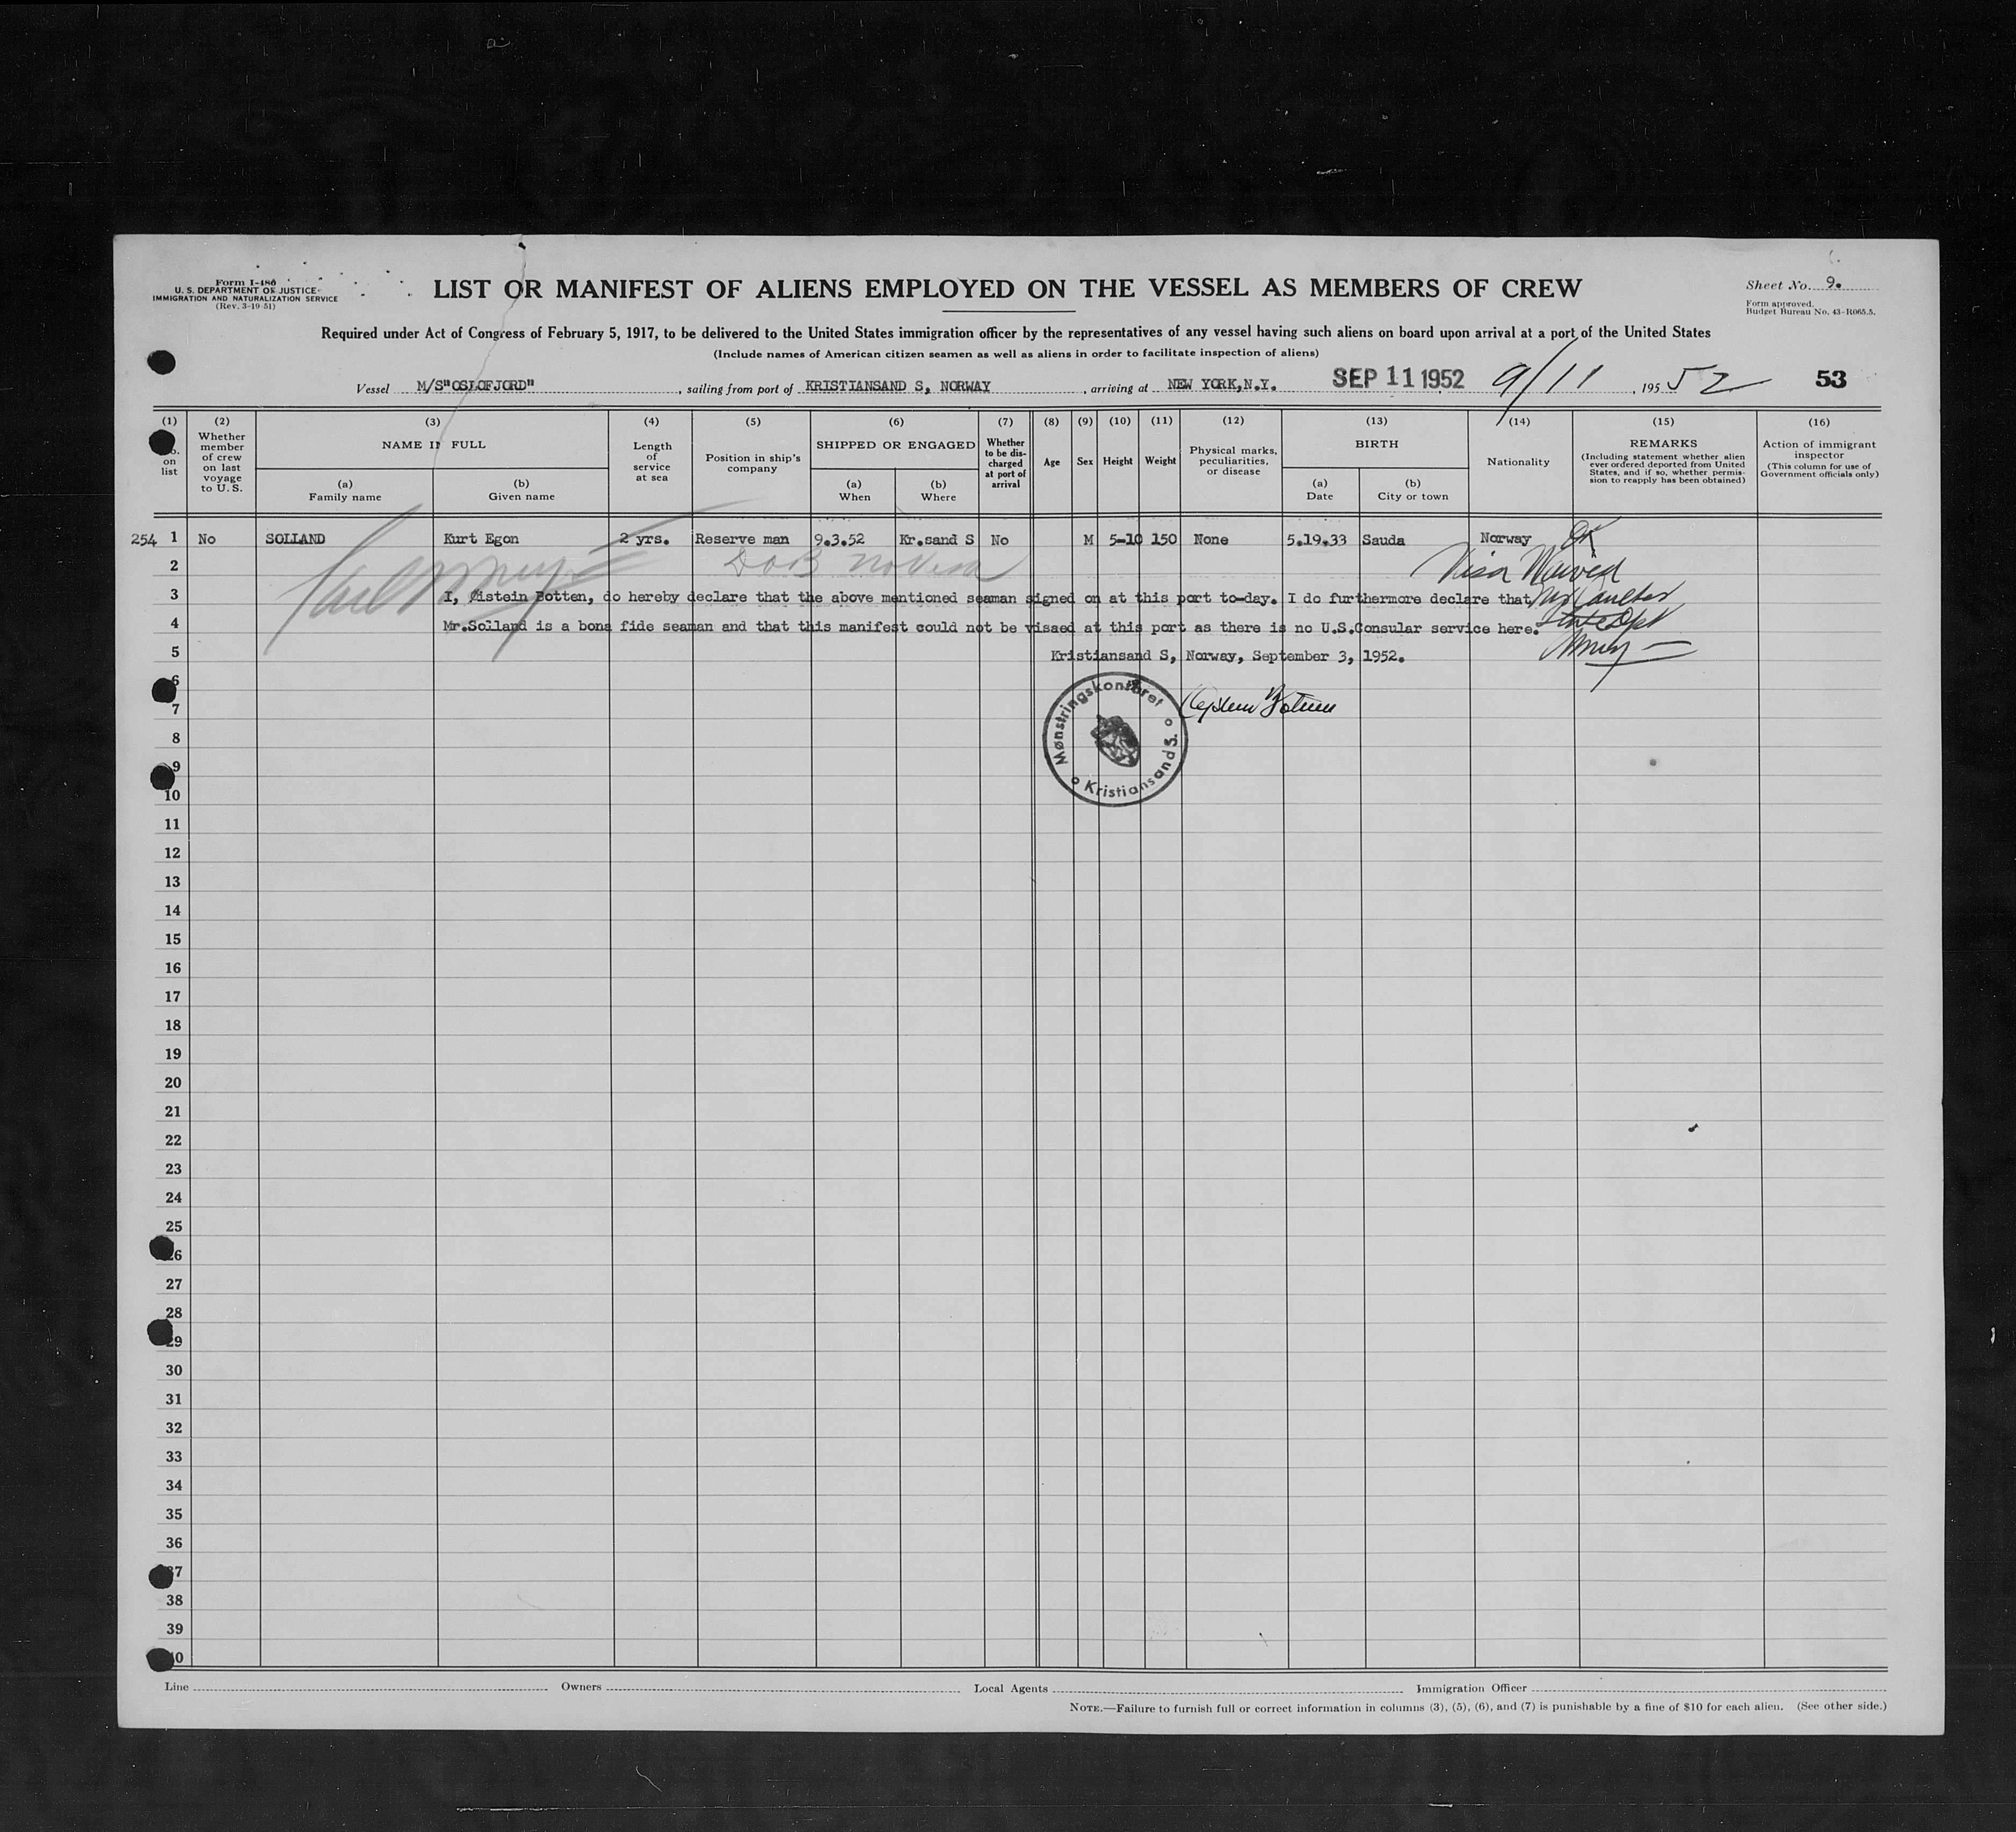 Form I-480
U. S. DEPARTMENT OF JUSTICE
IMMIGRATION AND NATURALIZATION SERVICE
(Rev. 3-19-51)
LIST OR MANIFEST OF ALIENS EMPLOYED ON THE VESSEL AS MEMBERS OF CREW
Sheet No. 9.
Form approved.
Budget Bureau No. 43-R065.5.
Required under Act of Congress of February 5, 1917, to be delivered to the United States immigration officer by the representatives of any vessel having such aliens on board upon arrival at a port of the United States
(Include names of American citizen seamen as well as aliens in order to facilitate inspection of aliens)
Vessel M/S"OSLOFJORD" , sailing from port of KRISTIANSAND S, NORWAY , arriving at NEW YORK,N.Y. SEP 11 1952 9/11 , 195 52 53
(1) (2) (3) (4) (5) (6) (7) (8) (9) (10) (11) (12) (13) (14) (15) (16)
No. on list
Whether member of crew on last voyage to U. S.
NAME IN FULL
(a) Family name
(b) Given name
Length of service at sea
Position in ship's company
SHIPPED OR ENGAGED
(a) When
(b) Where
Whether to be discharged at port of arrival
Age
Sex
Height
Weight
Physical marks, peculiarities, or disease
BIRTH
(a) Date
(b) City or town
Nationality
REMARKS
(Including statement whether alien ever ordered deported from United States, and if so, whether permission to reapply has been obtained)
Action of immigrant inspector
(This column for use of Government officials only)
254 1 No SOLLAND Kurt Egon 2 yrs. Reserve man 9.3.52 Kr.sand S No M 5-10 150 None 5.19.33 Sauda Norway OK
2 DOB no Visa Visa Waived
3 I, Øistein Botten, do hereby declare that the above mentioned seaman signed on at this port to-day. I do furthermore declare that
4 Mr.Solland is a bona fide seaman and that this manifest could not be visaed at this port as there is no U.S.Consular service here. State Dept
5 Kristiansand S, Norway, September 3, 1952.
6
7
Mønstringskontoret
Kristiansand S.
8
9
10
11
12
13
14
15
16
17
18
19
20
21
22
23
24
25
26
27
28
29
30
31
32
33
34
35
36
37
38
39
40
Line Owners Local Agents Immigration Officer
NOTE.—Failure to furnish full or correct information in columns (3), (5), (6), and (7) is punishable by a fine of $10 for each alien. (See other side.)